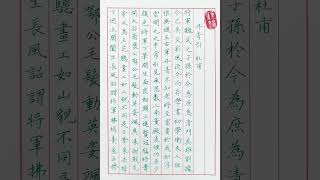 丹青引 杜甫
將軍魏武之子孫於今為庶為清門英雄割據
今已矣文彩風流今尚存學書初學衛夫人但
恨無過王右軍丹青不知老將至富貴於我如浮
雲開元之中常引見承恩數上南薰殿凌煙功臣少
顏色將軍下筆開生面良相頭上進賢冠猛將腰
間大羽箭褒公鄂公毛髮動英姿颯爽來酣戰先
帝天馬玉花驄畫工如山貌不同是日牽來赤墀
下迥立閶闔生長風詔謂將軍拂絹素意匠慘